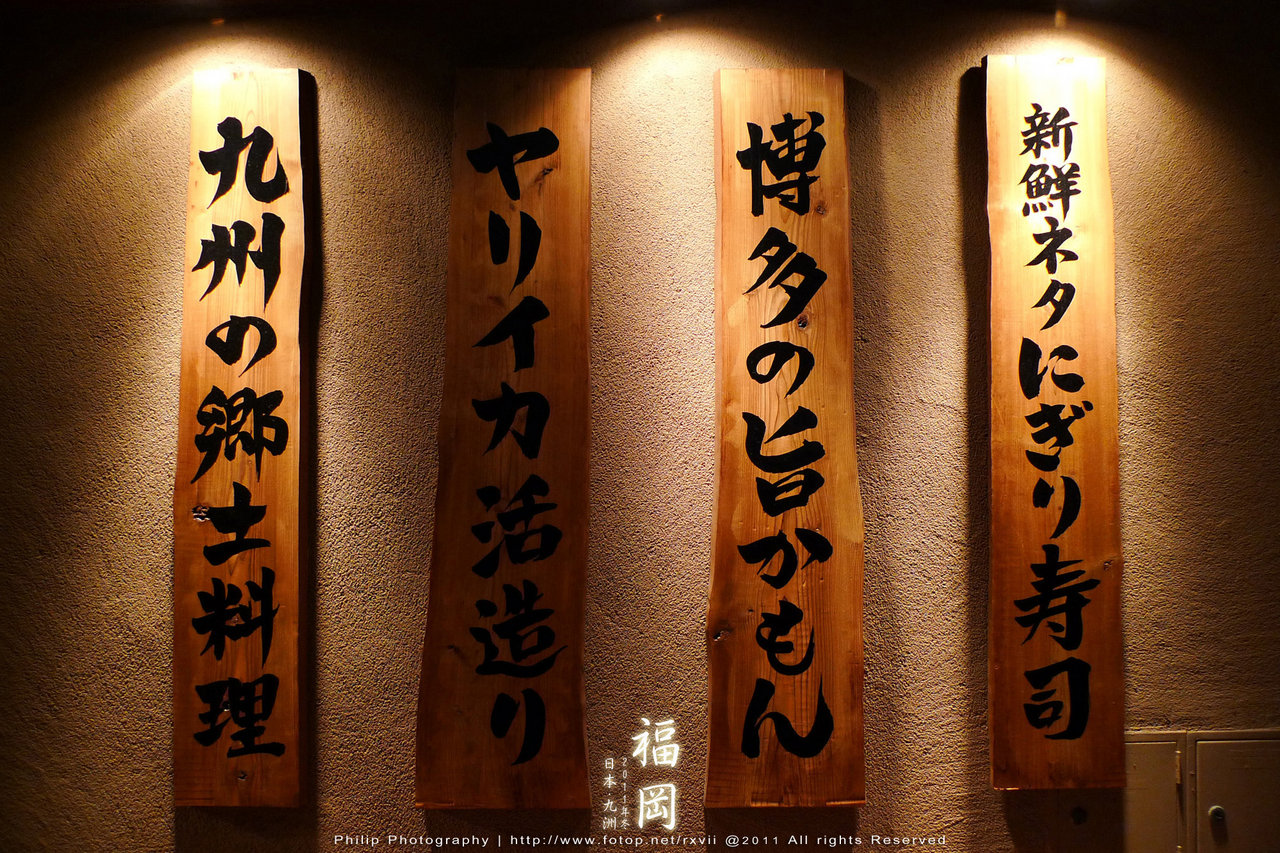 新鮮ネタにぎり寿司
博多の旨かもん
ヤリイカ活造り
九州の郷土料理
福岡
2011年冬
日本·九洲
Philip Photography | http://www.fotop.net/rxvii @2011 All rights Reserved